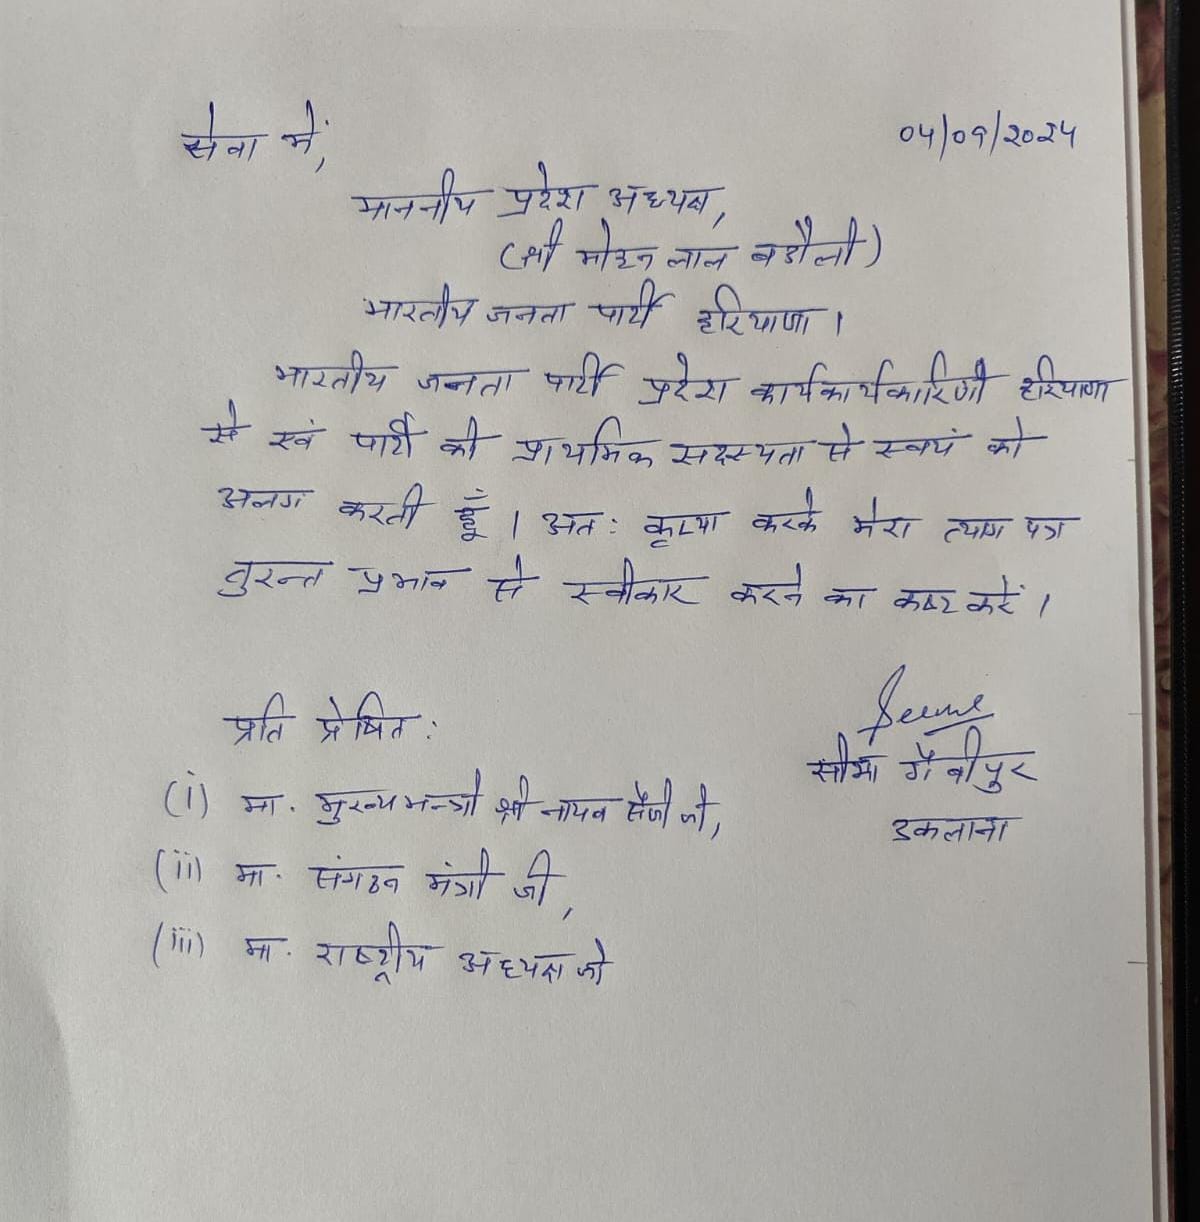 सेवा में,
04/09/2024
माननीय प्रदेश अध्यक्ष,
(श्री मोहन लाल बडौली)
भारतीय जनता पार्टी हरियाणा।
भारतीय जनता पार्टी प्रदेश कार्यकार्यकारिणी हरियाणा
से एवं पार्टी की प्राथमिक सदस्यता से स्वयं को
अलग करती हूँ। अतः कृप्या करके मेरा त्याग पत्र
तुरन्त प्रभाव से स्वीकार करने का कष्ट करें।
Seema
प्रति प्रेषित:
सीमा गैबीपुर
उकलाना
(i) मा. मुख्यमन्त्री श्री नायब सैनी जी,
(ii) मा. संगठन मंत्री जी,
(iii) मा. राष्ट्रीय अध्यक्ष जी